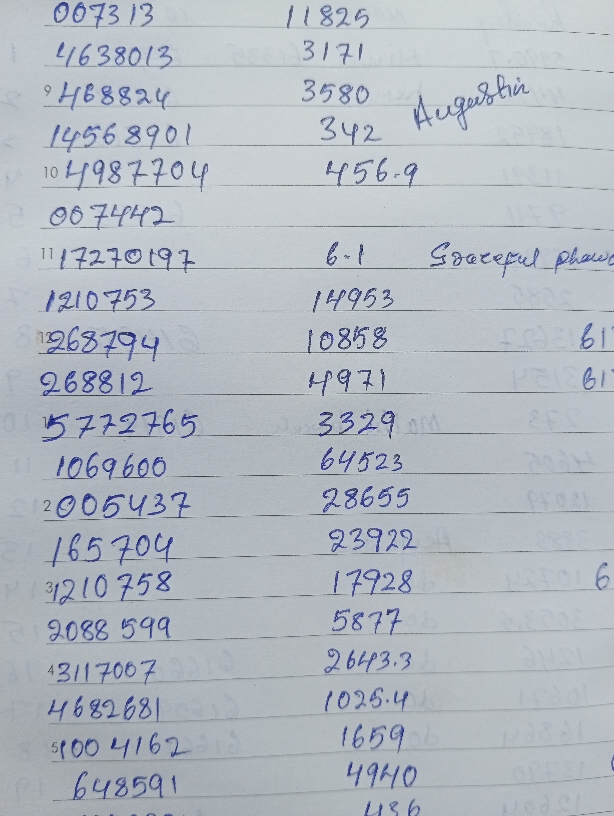 007313 11825
4638013 3171
9 468824 3580 Augustin
14568901 342
10 4987704 456.9
007442
11 17270197 6.1 Graceful
1210753 14953
12 268794 10858 617
268812 4971 617
5772765 3329
1069600 64523
2 005437 28655
165704 23922
3 1210758 17928 6
2088599 5877
4 3117007 2643.3
4682681 1025.4
5 1004162 1659
648591 4940
436